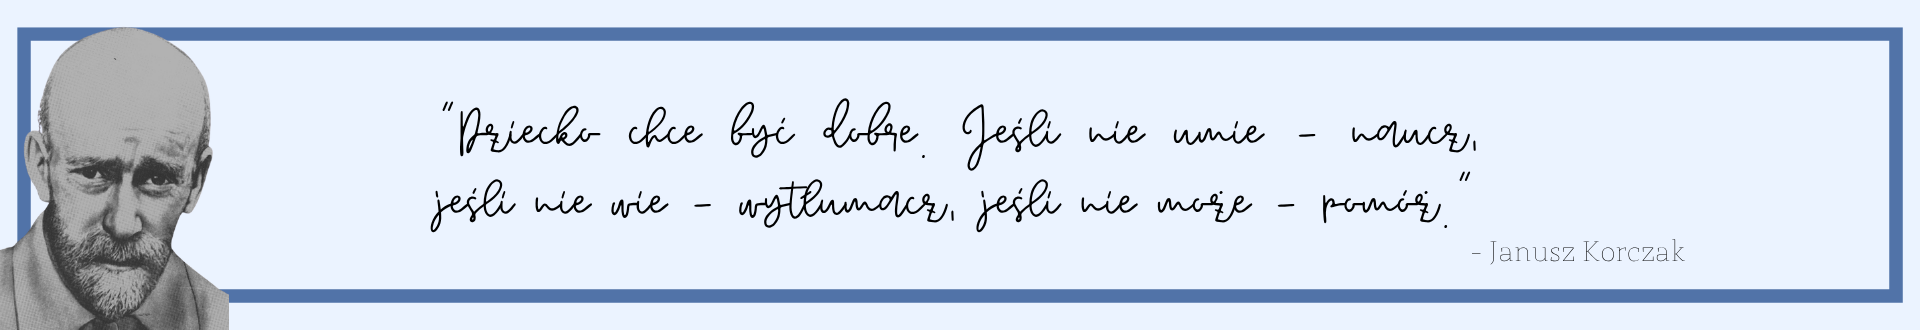 "Dziecko chce być dobre. Jeśli nie umie – naucz,
jeśli nie wie – wytłumacz, jeśli nie może – pomóż."
- Janusz Korczak